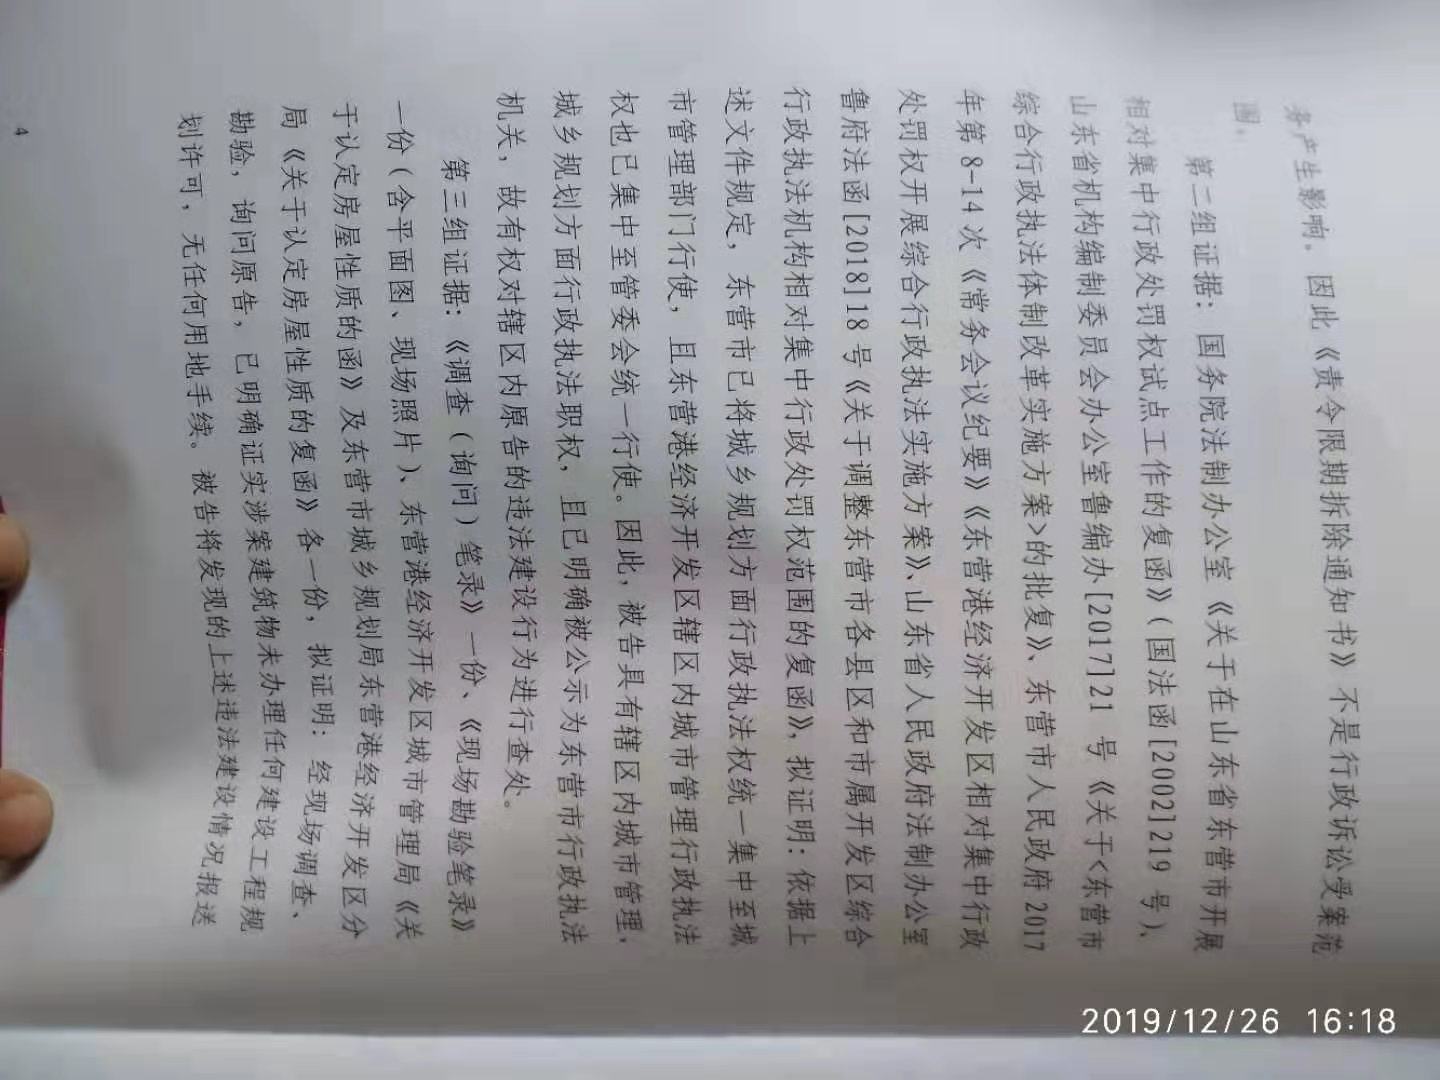 务产生影响。因此《责令限期拆除通知书》不是行政诉讼受案范
围。
第二组证据：国务院法制办公室《关于在山东省东营市开展
相对集中行政处罚权试点工作的复函》（国法函[2002]219 号）、
山东省机构编制委员会办公室鲁编办[2017]21 号《关于<东营市
综合行政执法体制改革实施方案>的批复》、东营市人民政府 2017
年第 8-14 次《常务会议纪要》《东营港经济开发区相对集中行政
处罚权开展综合行政执法实施方案》、山东省人民政府法制办公室
鲁府法函[2018]18 号《关于调整东营市各县区和市属开发区综合
行政执法机构相对集中行政处罚权范围的复函》，拟证明：依据上
述文件规定，东营市已将城乡规划方面行政执法权统一集中至城
市管理部门行使，且东营港经济开发区辖区内城市管理行政执法
权也已集中至管委会统一行使。因此，被告具有辖区内城市管理、
城乡规划方面行政执法职权，且已明确被公示为东营市行政执法
机关，故有权对辖区内原告的违法建设行为进行查处。
第三组证据：《调查（询问）笔录》一份、《现场勘验笔录》
一份（含平面图、现场照片）、东营港经济开发区城市管理局《关
于认定房屋性质的函》及东营市城乡规划局东营港经济开发区分
局《关于认定房屋性质的复函》各一份，拟证明：经现场调查、
勘验，询问原告，已明确证实涉案建筑物未办理任何建设工程规
划许可，无任何用地手续。被告将发现的上述违法建设情况报送
4
2019/12/26 16:18